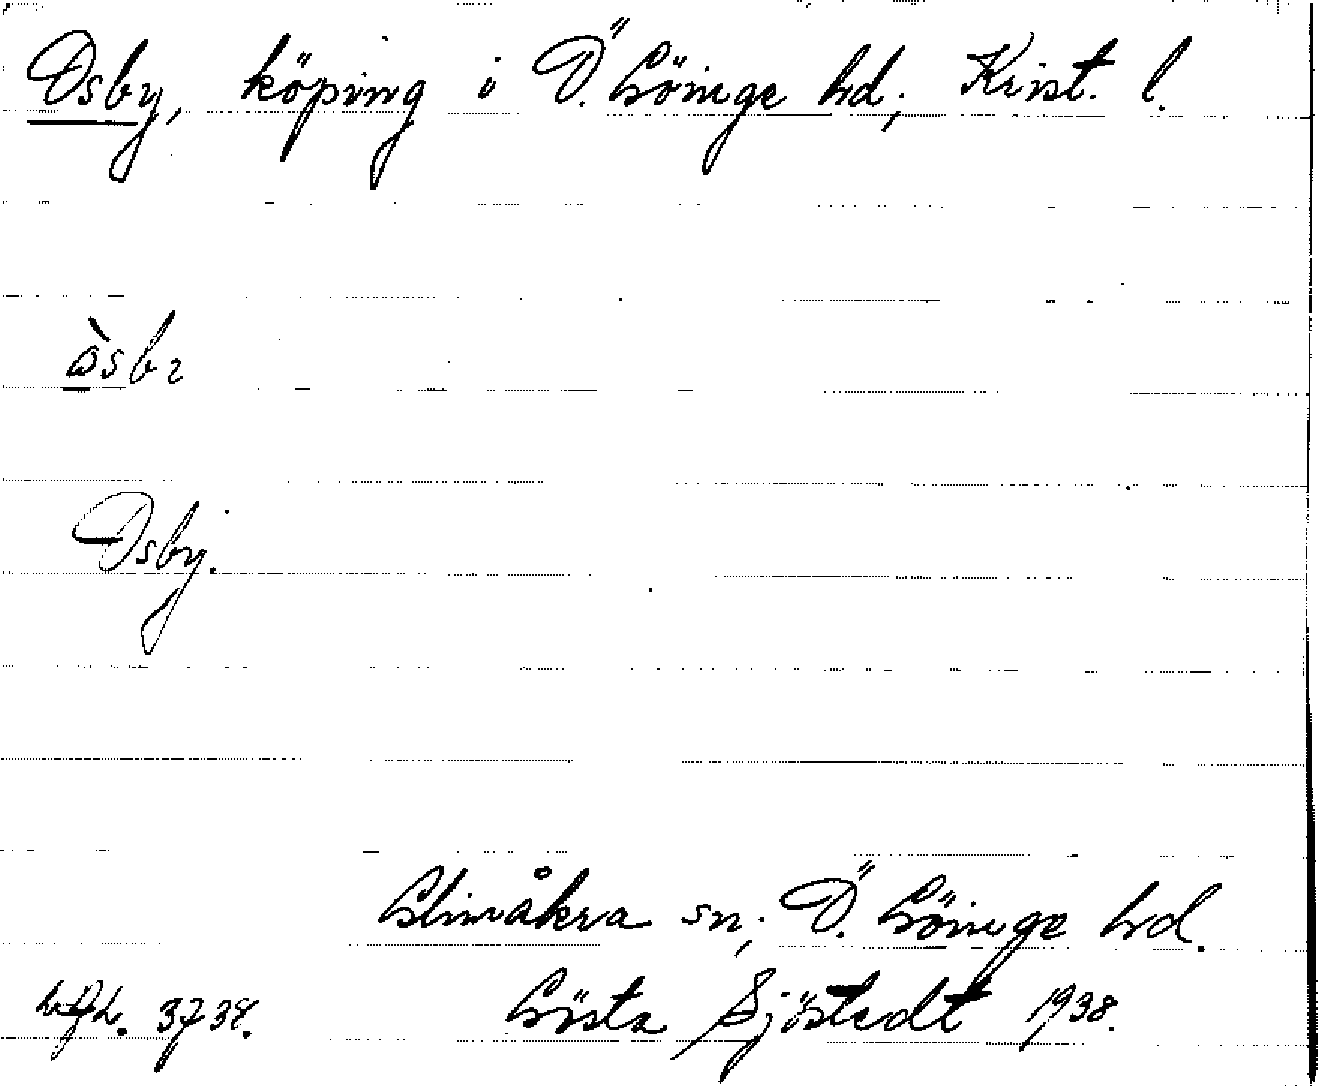 Osby, köping i Ö. Göinge hd; Krist. l.
òsbı
Osby.
Glimåkra sn; Ö. Göinge hd.
Gösta Sjöstedt 1938.